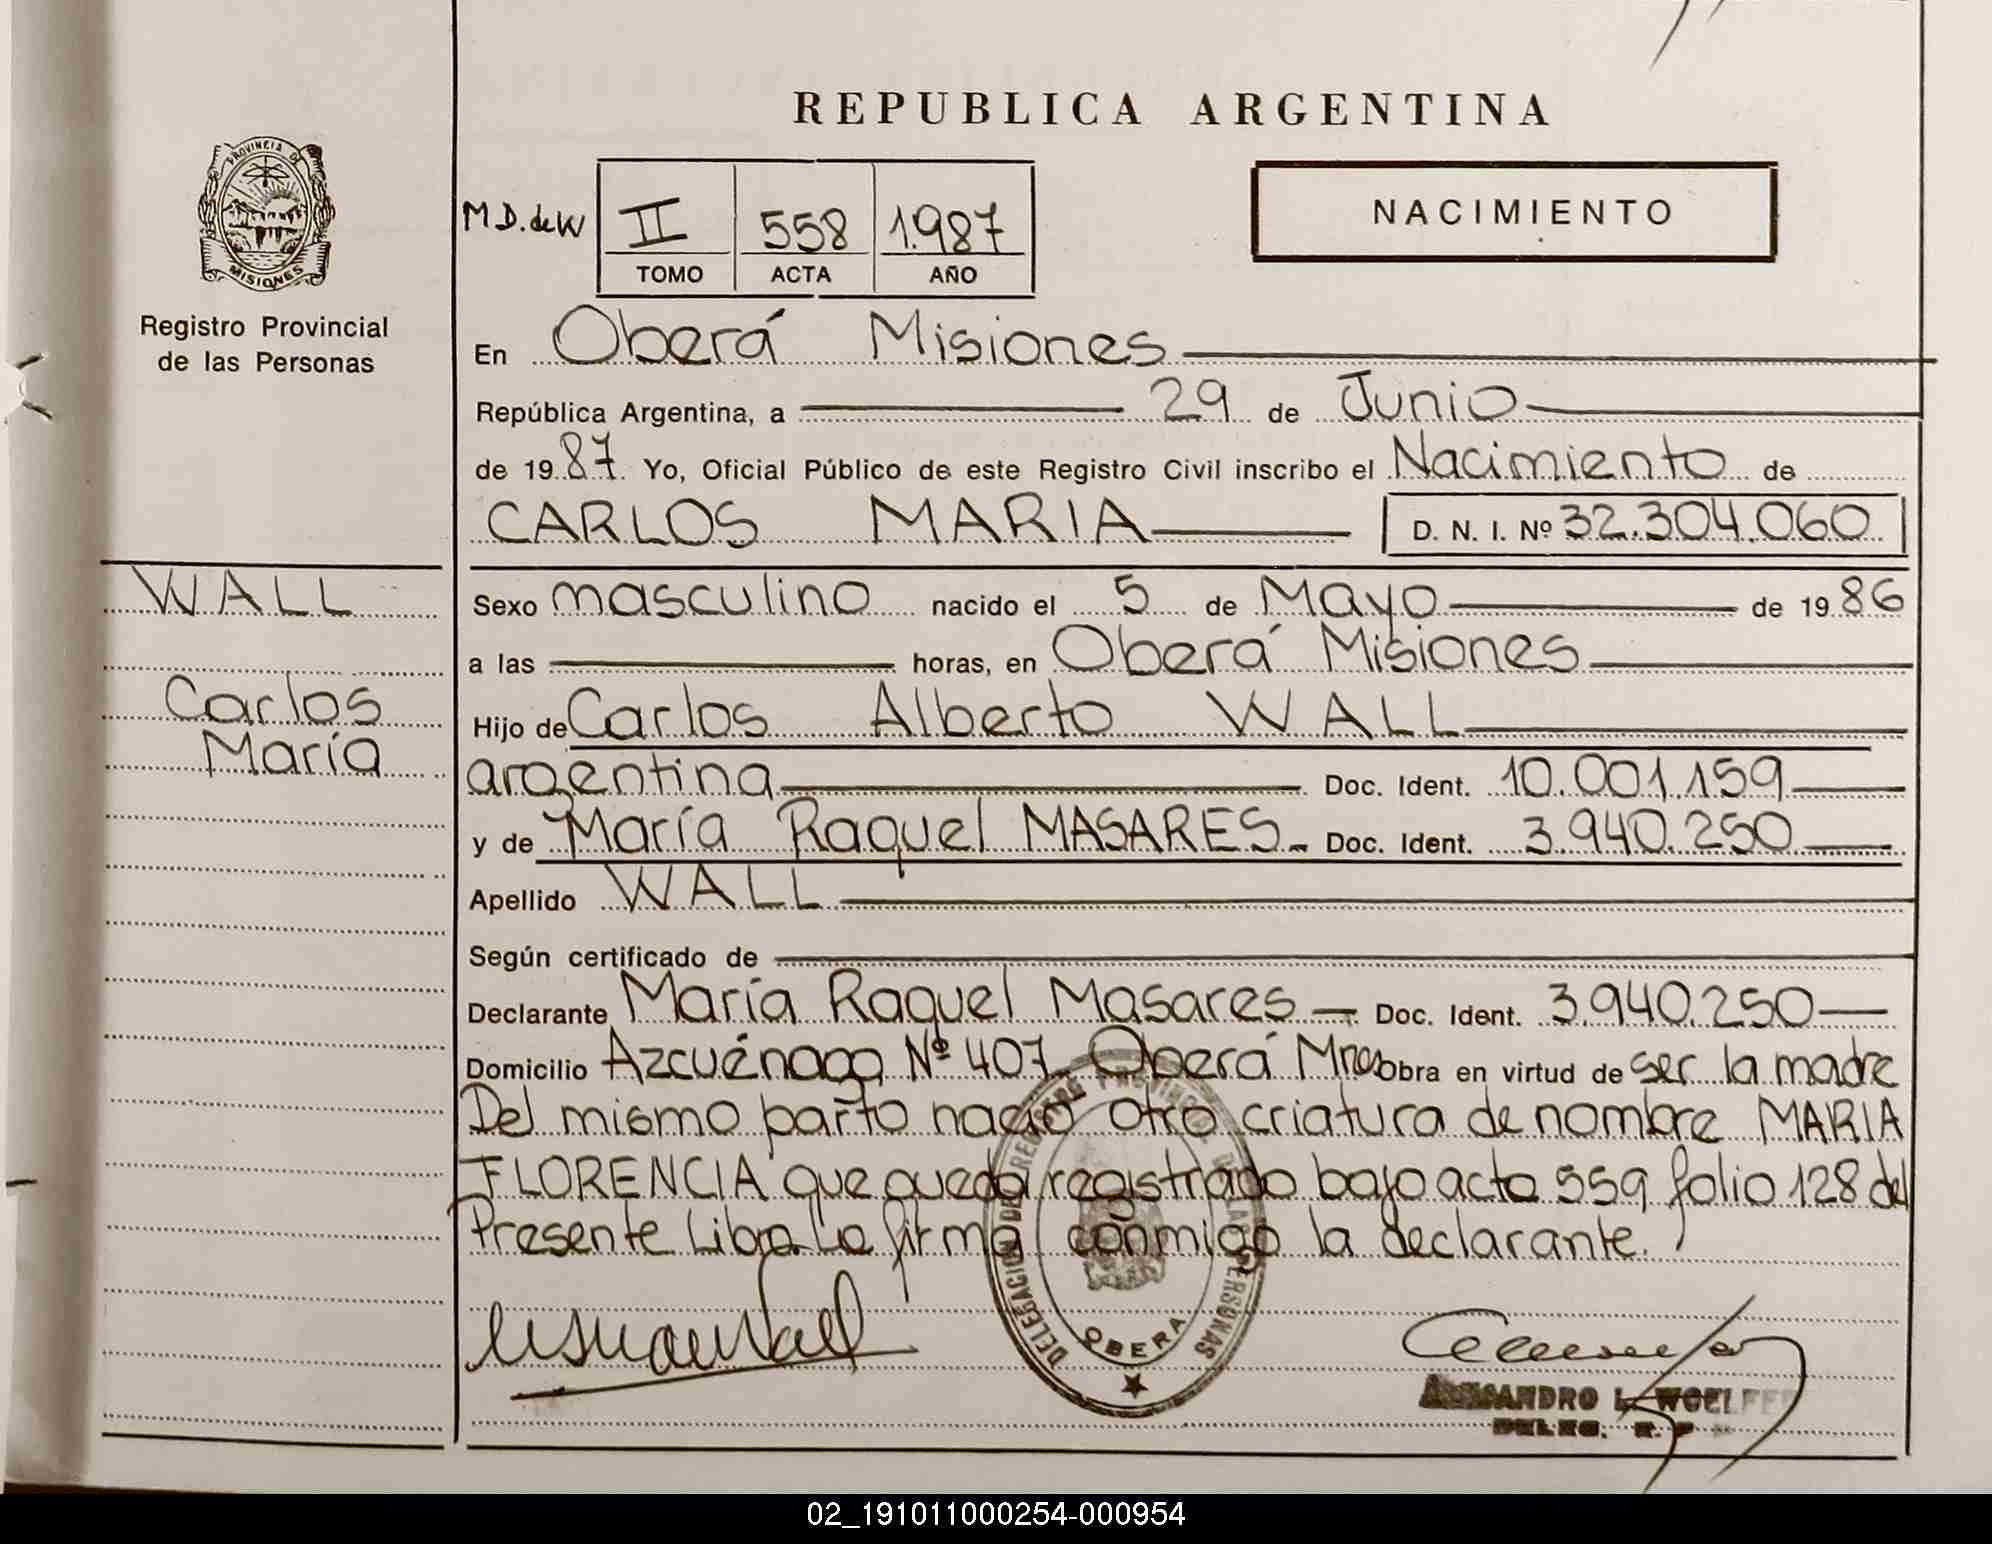 REPUBLICA ARGENTINA
PROVINCIA DE
MISIONES
Registro Provincial
de las Personas
M D. de W
II 558 1.987
TOMO ACTA AÑO
NACIMIENTO
En Oberá Misiones
República Argentina, a 29 de Junio
de 1987. Yo, Oficial Público de este Registro Civil inscribo el Nacimiento de
CARLOS MARIA D. N. I. Nº 32.304.060
WALL
Carlos
María
Sexo masculino nacido el 5 de Mayo de 1986
a las horas, en Oberá Misiones
Hijo de Carlos Alberto WALL
argentina Doc. Ident. 10.001.159
y de María Raquel MASARES Doc. Ident. 3.940.250
Apellido WALL
Según certificado de
Declarante María Raquel Masares Doc. Ident. 3.940.250
Domicilio Azcuénaga Nº 407 Oberá Mnes Obra en virtud de ser la madre
Del mismo parto nació otro criatura de nombre MARIA
FLORENCIA que queda registrado bajo acta 559 folio 128 del
Presente Libro. firma conmigo la declarante.
DELEGACION DEL REGISTRO PROVINCIAL DE LAS PERSONAS
OBERA
02_191011000254-000954